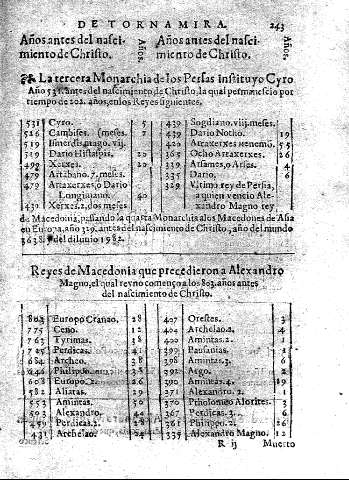 DE TORNAMIRA. 243
Años antes del nasci-
miento de Christo.
Años.
Años antes del nasci-
miento de Christo.
Años.
La tercera Monarchia de los Persas instituyo Cyro
Año 531. antes del nascimiento de Christo, la qual permanescio por
tiempo de 202. años, en los Reyes siguientes.
531 Cyro. 5
526 Cambises. 7 meses. 7
519 Ismerdis, mago. vij. meses.
519 Dario Histaspis. 20
499 Xerxes. 20
479 Artabano. 7. meses.
479 Artaxerxes, o Dario
Longimano. 40
439 Xerxes. 2. dos meses
439 Sogdiano. viij. meses.
439 Dario Notho. 19
420 Artaxerxes Menemõ. 55
365 Ocho Artaxerxes. 26
339 Arsames, o Arses. 4
335 Dario, 6
329 Vltimo rey de Persia,
a quien vencio Ale-
xandro Magno rey
de Macedonia, passando la quarta Monarchia a los Macedones de Asia
en Europa, año 329. antes del nascimiento de Christo, año del mundo
3638. del diluuio 1982.
Reyes de Macedonia que precedieron a Alexandro
Magno, el qual reyno començo a los 803. años antes
del nascimiento de Christo.
803 Europo Cranao. 28
775 Ceno. 12
763 Tyrimas. 38
725 Perdicas. 41
684 Argeo. 38
646 Philippo. 38
608 Europo. 2. 26
582 Aliatas. 29
553 Amintas. 50
503 Alexandro. 44
459 Perdicas. 2. 28
431 Archelao. 24
407 Orestes. 3
404 Archelao. 2. 4
400 Amintas. 2. 1
399 Pausanias. 1
398 Amintas. 3. 6
392 Argo. 2
390 Amintas. 4. 19
371 Alexandro. 2. 1
370 Ptholomeo Alorites. 3
367 Perdicas. 3. 6
361 Philippo. 2. 26
335 Alexandro Magno. 12
R ij Muerto